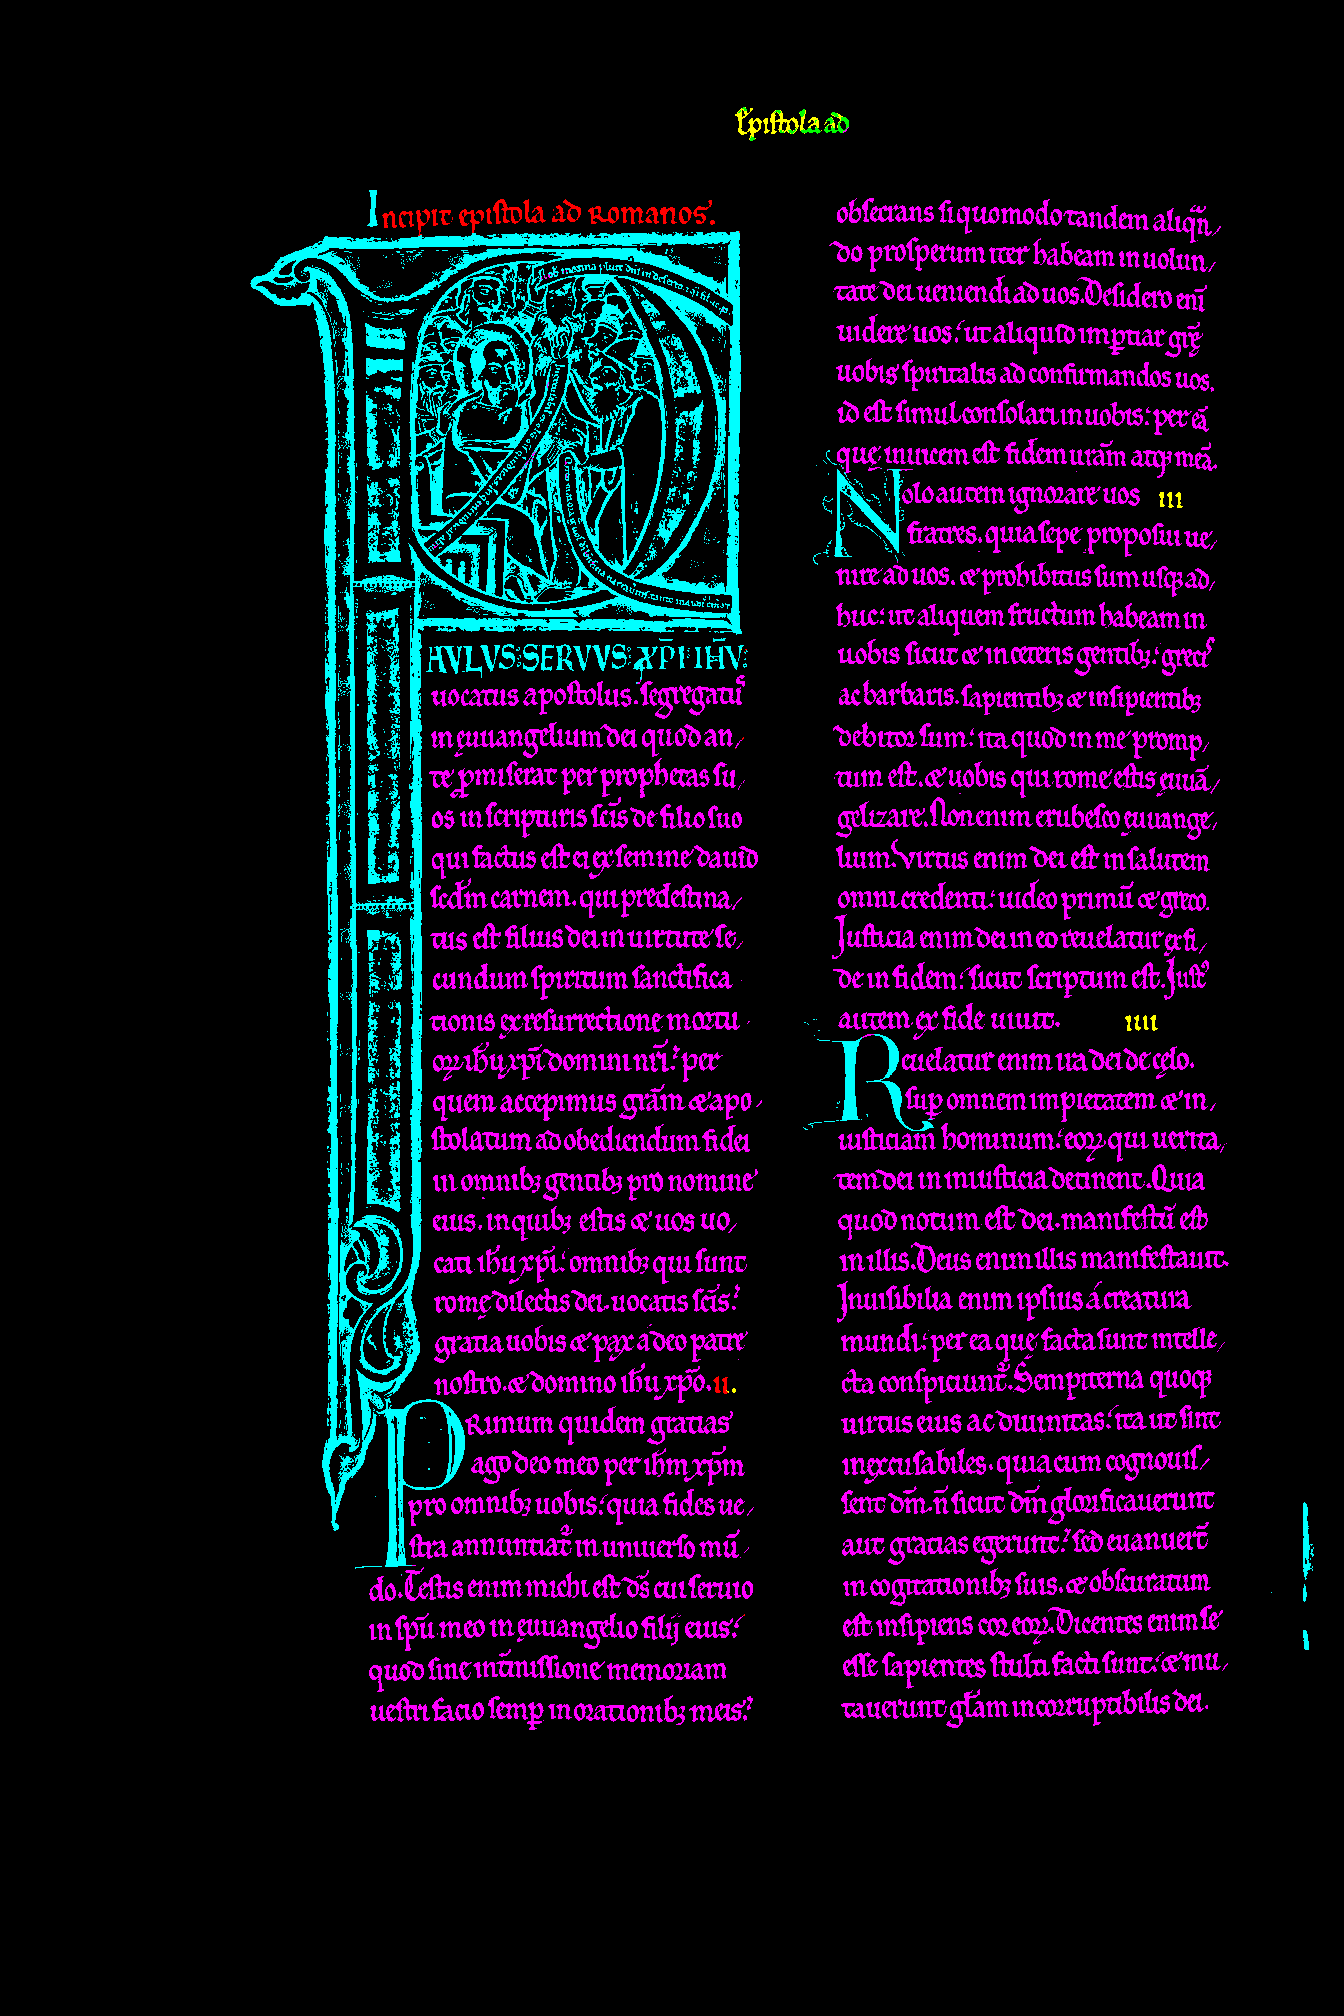 Epistola ad
Incipit epistola ad Romanos.
PAVLVS: SERVVS: XP̅I IH̅V:
uocatus apostolus. segregatus
in ęuuangelium dei quod an/
te p̄miserat per prophetas su/
os in scripturis sc̄is de filio suo
qui factus est ei ex semine dauid
scd̄m carnem. qui predestina/
tus est filius dei in uirtute se/
cundum spiritum sanctifica
tionis ex resurrectione mortu/
oꝝ ih̄u xp̄i domini nr̄i: per
quem accepimus grām & apo/
stolatum ad obediendum fidei
in omnibꝫ gentibꝫ pro nomine
eius. in quibꝫ estis & uos uo/
cati ih̄u xp̄i: omnibꝫ qui sunt
romę dilectis dei. uocatis sc̄is:
gratia uobis & pax a deo patre
nostro. & domino ih̄u xp̄o. ii.
PRimum quidem gratias
ago deo meo per ih̄m xp̄m
pro omnibꝫ uobis: quia fides ue/
stra annuntiat᷑ in uniuerso mū/
do. Testis enim michi est d̄s cui seruio
in sp̄u meo in ęuuangelio filij eius:
quod sine int̄missione memoriam
uestri facio semꝑ in orationibꝫ meis:
obsecrans si quomodo tandem aliqn̄/
do prosperum iter habeam in uolun/
tate dei ueniendi ad uos. Desidero eni̅
uidere uos: ut aliquid imꝑtiar gr̄ę
uobis spiritalis ad confirmandos uos.
id est simul consolari in uobis: per eā
quę inuicem est fidem urām atqꝫ meā.
Nolo autem ignorare uos iii
fratres. quia sepe proposui ue/
nire ad uos. & prohibitus sum usqꝫ ad/
huc: ut aliquem fructum habeam in
uobis sicut & in ceteris gentibꝫ: grecis
ac barbaris. sapientibꝫ & insipientibꝫ
debitor sum: ita quod in me promp/
tum est. & uobis qui rome estis ęuuā/
gelizare. Non enim erubesco ęuuange/
lium. Virtus enim dei est in salutem
omni credenti: iudeo primū & greco.
Justicia enim dei in eo reuelatur ex fi/
de in fidem: sicut scriptum est. Just᷒
autem ex fide uiuit. iiii
Reuelatur enim ira dei de cęlo.
suꝑ omnem impietatem & in/
iusticiam hominum: eoꝝ qui uerita/
tem dei in iniusticia detinent. Quia
quod notum est dei. manifestū est
in illis. Deus enim illis manifestauit.
Inuisibilia enim ipsius á creatura
mundi: per ea quę facta sunt intelle/
cta conspiciunt᷑. Sempiterna quoqꝫ
uirtus eius ac diuinitas: ita ut sint
inexcusabiles. quia cum cognouis/
sent dm̄. n̄ sicut dm̄ glorificauerunt
aut gratias egerunt: sed euanuerт̄
in cogitationibꝫ suis. & obscuratum
est insipiens cor eoꝝ. Dicentes enim se
esse sapientes stulti facti sunt: & mu/
tauerunt glām incorruptibilis dei.